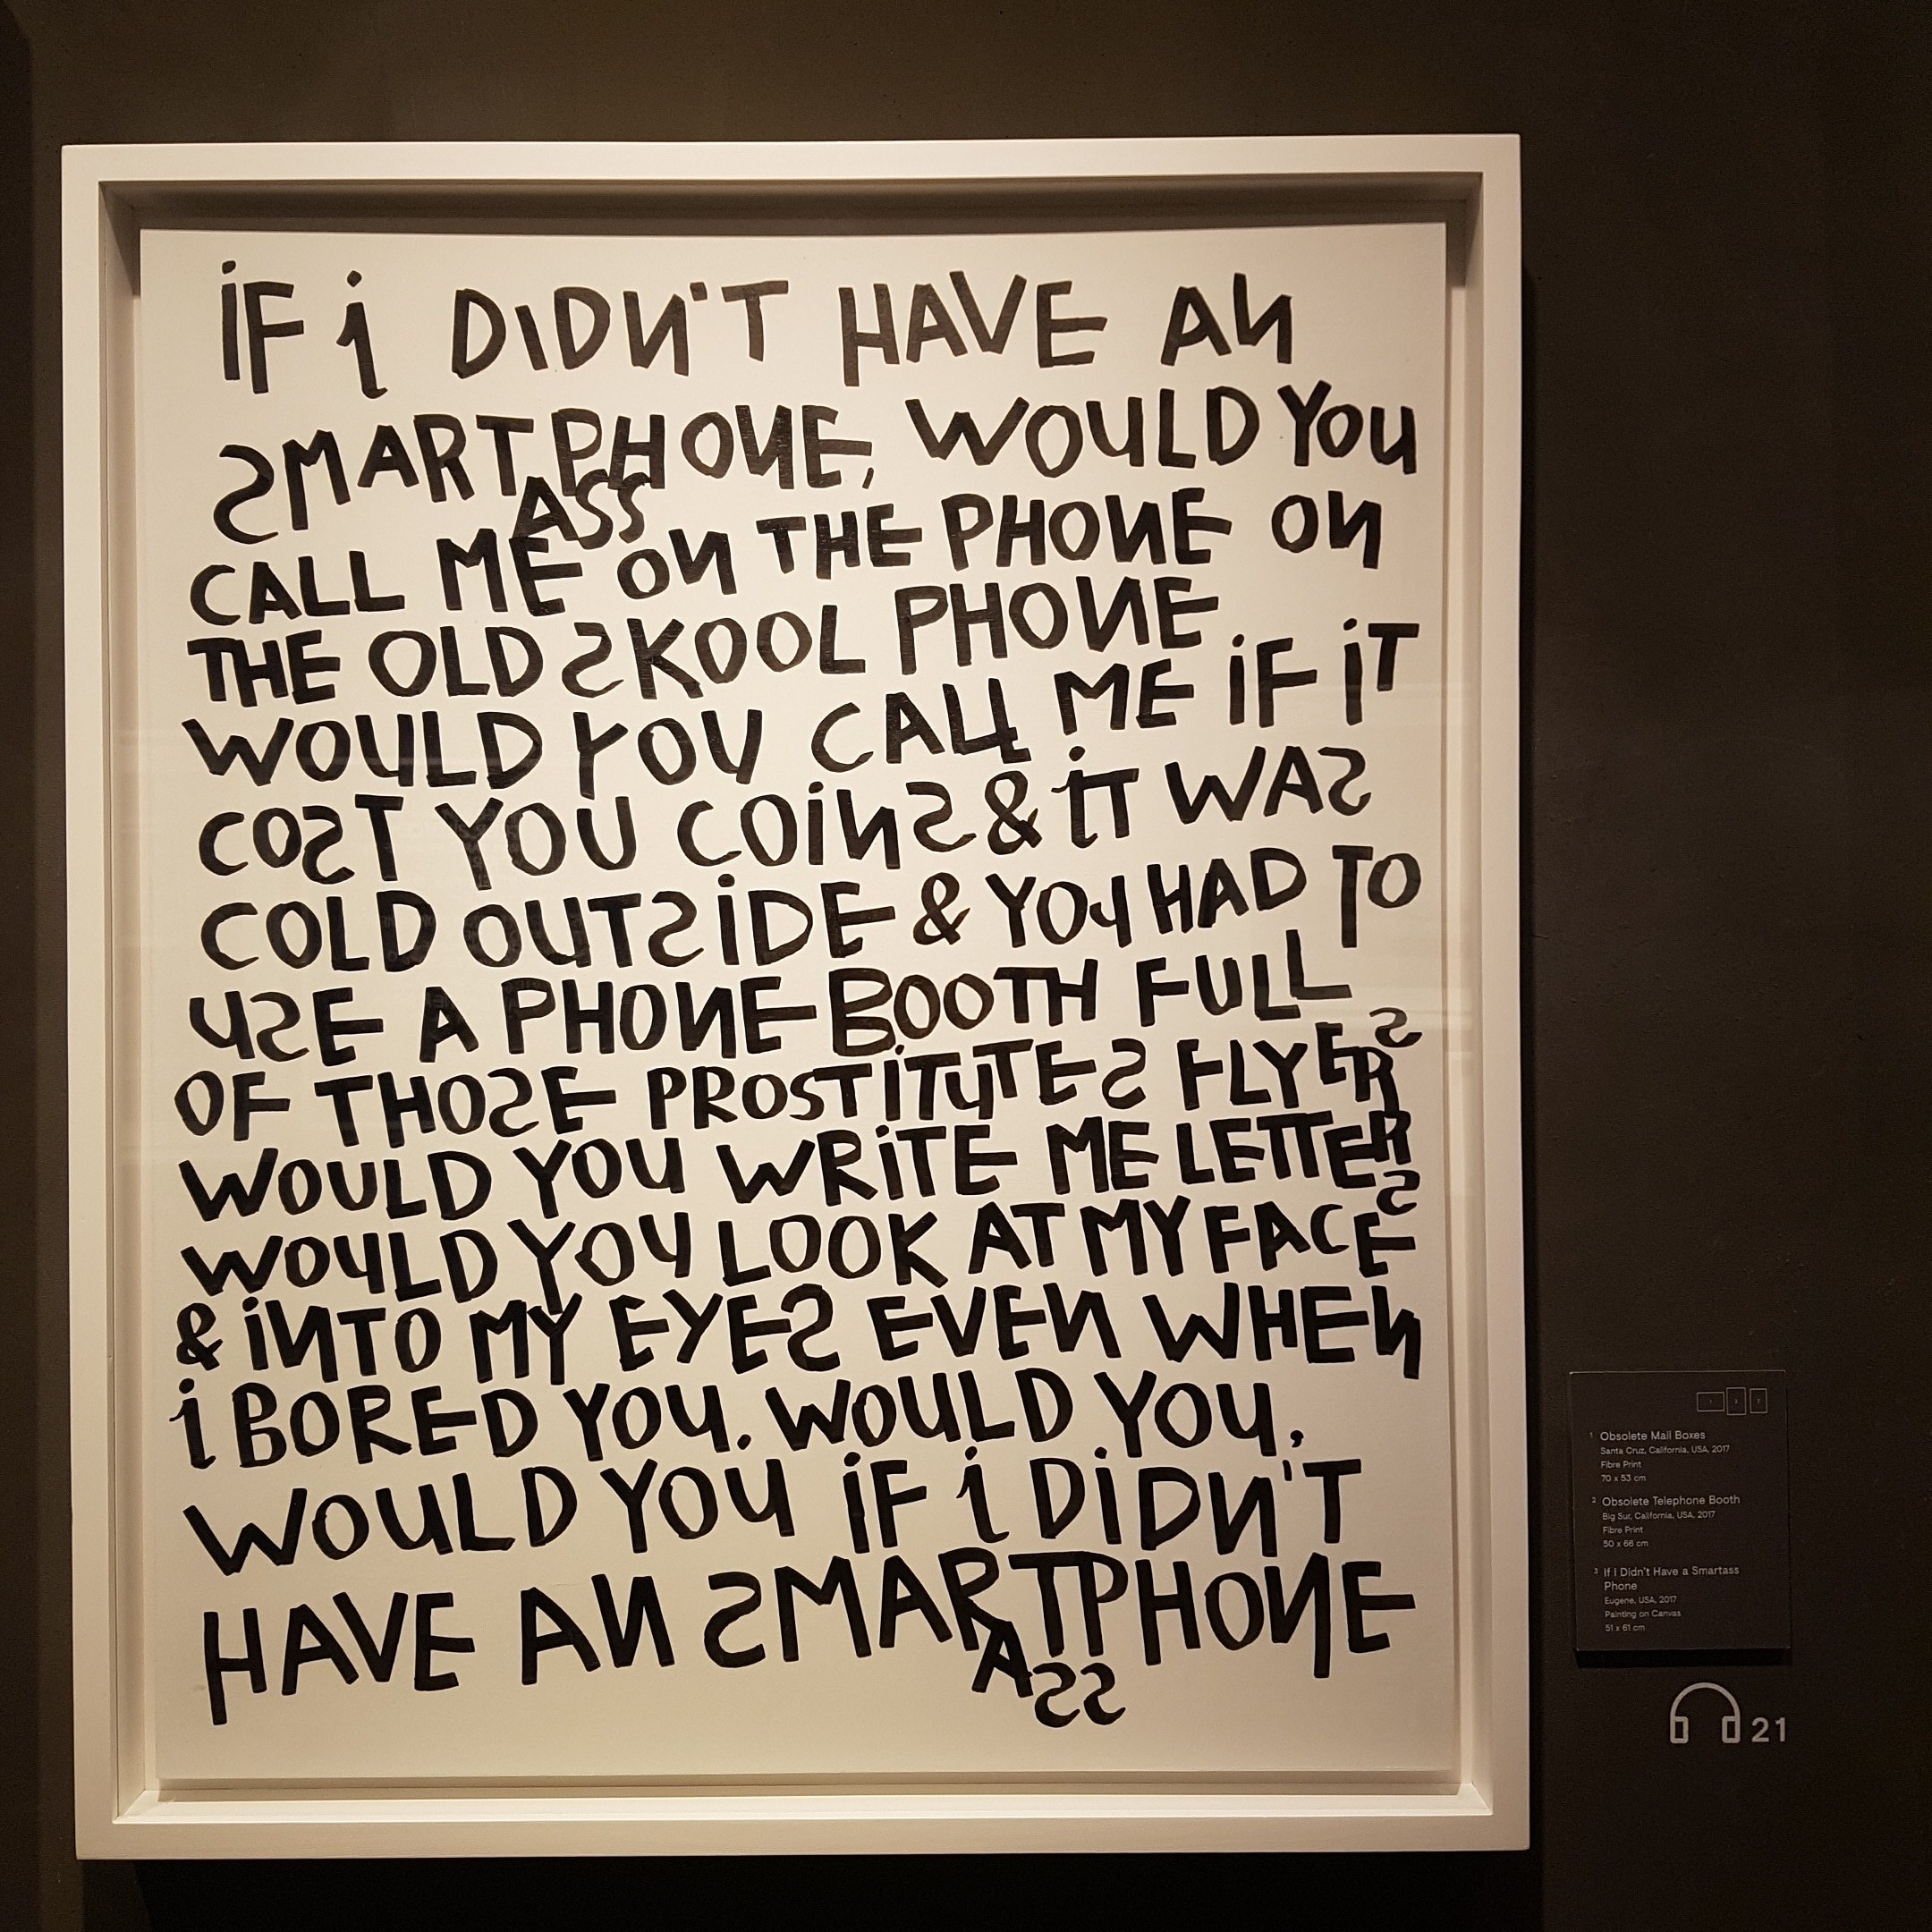 iF i DIDN'T HAVE AN
SMARTPHONE, WOULD YOU
ASS
CALL ME ON THE PHONE ON
THE OLD SKOOL PHONE
WOULD YOU CALL ME iF iT
COST YOU COiNS & iT WAS
COLD OUTSiDE & YOU HAD TO
USE A PHONE BOOTH FULL
OF THOSE PROSTiTUTES FLYERS
WOULD YOU WRiTE ME LETTERS
WOULD YOU LOOK AT MY FACE
& iNTO MY EYES EVEN WHEN
i BORED YOU. WOULD YOU,
WOULD YOU iF i DiDN'T
HAVE AN SMARTPHONE
ASS
1 Obsolete Mail Boxes
Santa Cruz, California, USA, 2017
Fibre Print
70 x 53 cm
2 Obsolete Telephone Booth
Big Sur, California, USA, 2017
Fibre Print
50 x 66 cm
3 If I Didn't Have a Smartass
Phone
Eugene, USA, 2017
Painting on Canvas
51 x 61 cm
21